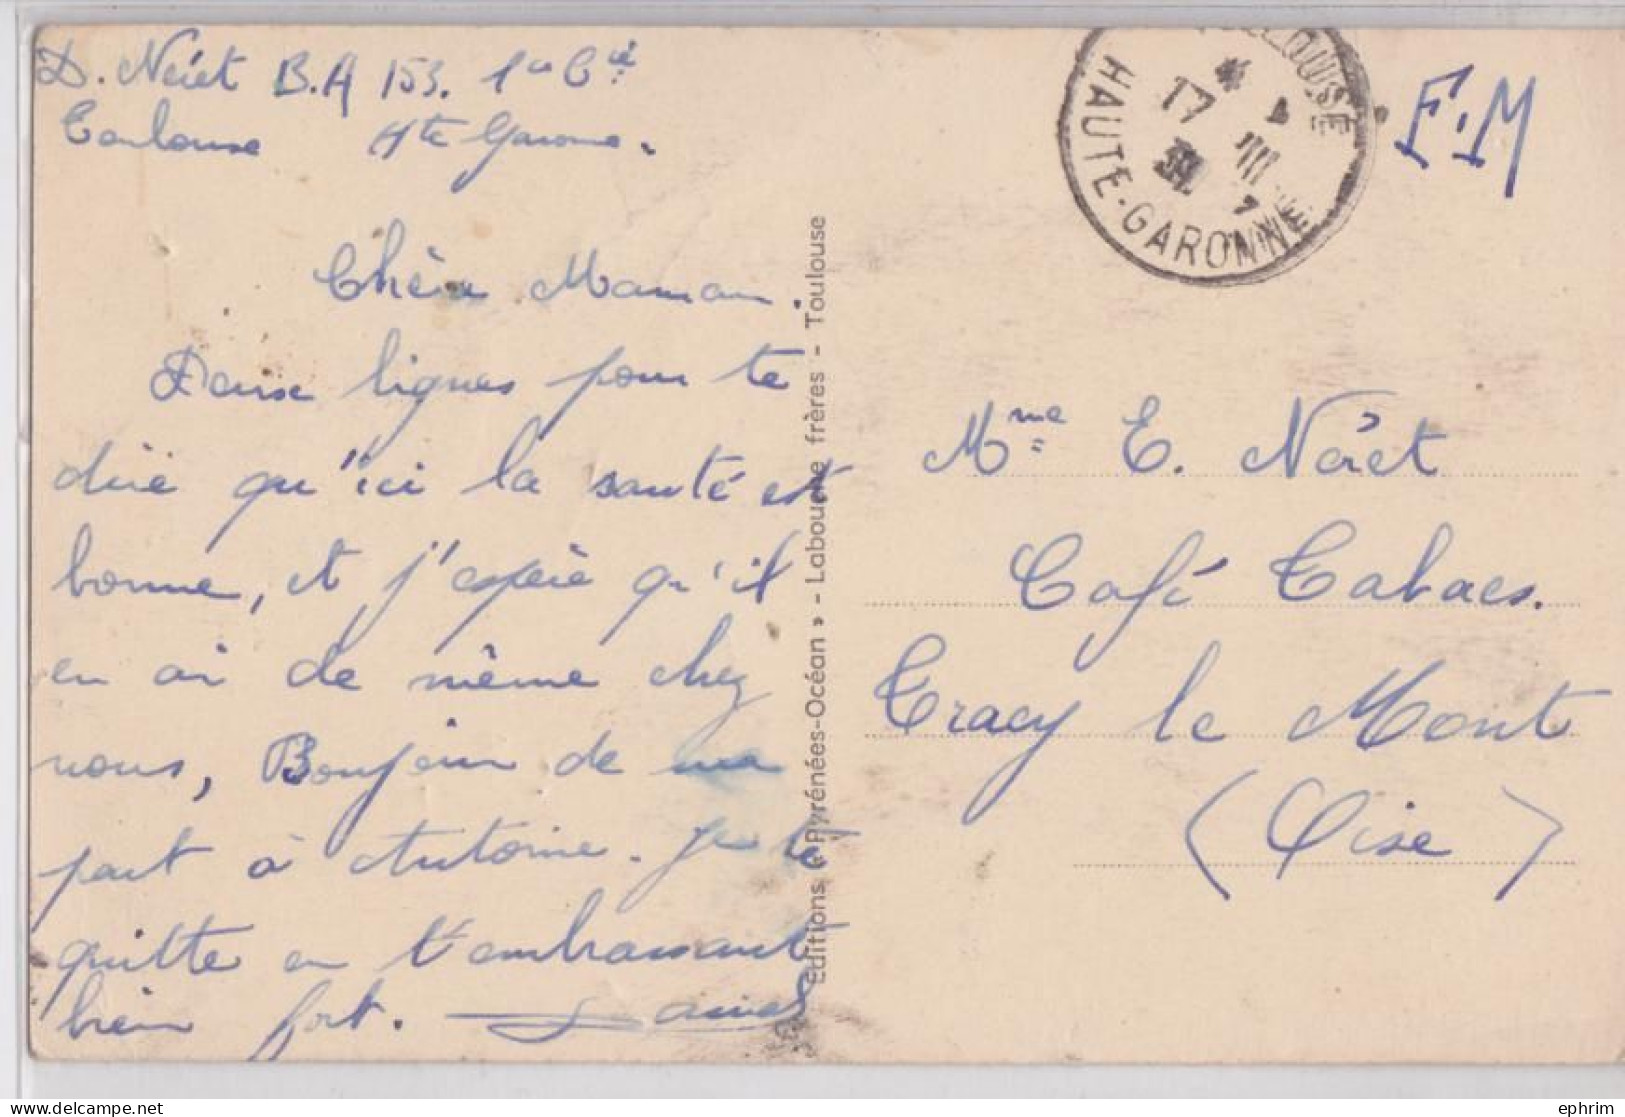 D. Néret B.A 153. 1re Cie
Toulouse Hte Garonne.
Chère Maman.
Deux lignes pour te
dire qu'ici la santé est
bonne, et j'espère qu'il
en ai de même chez
vous, Bonjour de ma
part à Antoine. Je te
quitte en t'embrassant
bien fort.
Editions « Pyrénées-Océan » - Labouche frères - Toulouse
TOULOUSE
17
HAUTE-GARONNE
F.M
Mme E. Néret
Café Tabacs.
Tracy le Mont
(Oise)
ephrim © www.delcampe.net